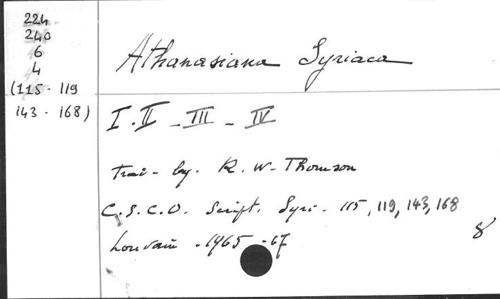 224
240
6
4
(115 - 119
143 - 168)
Athanasiana Syriaca
I. II - III - IV
Trad - by. R. W - Thomson
C.S.C.O. Script. Syri - 115, 119, 143, 168
Louvain - 1965 - 67
8